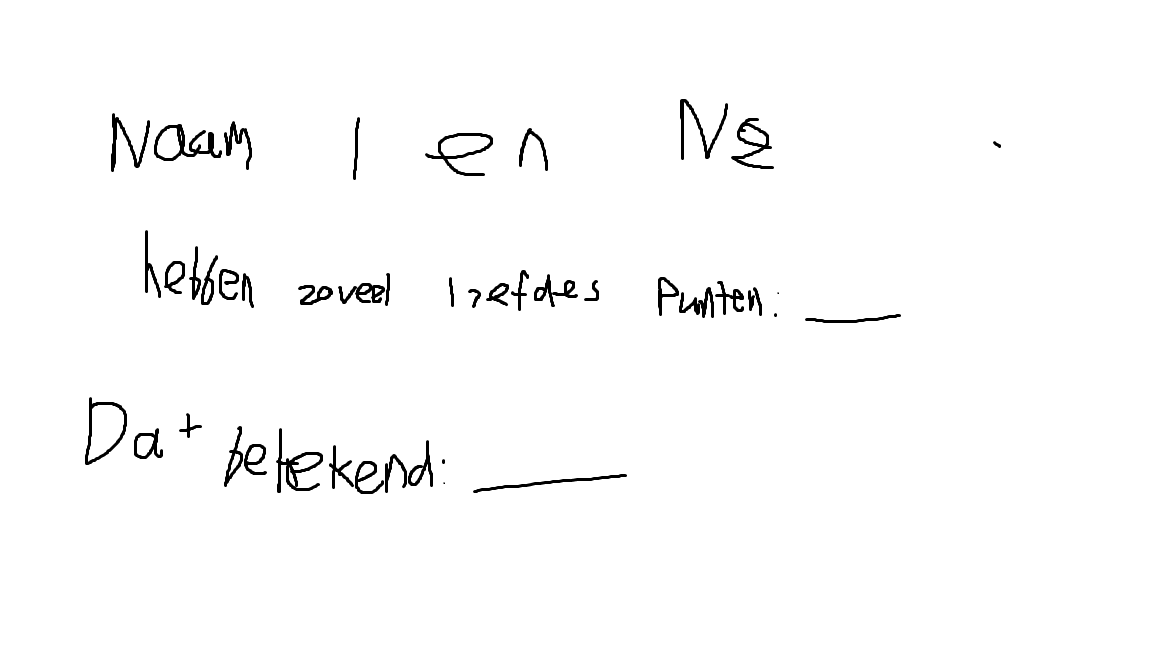 Naam 1 en N2
hebben zoveel liefdes Punten: ___
Dat betekend: ___